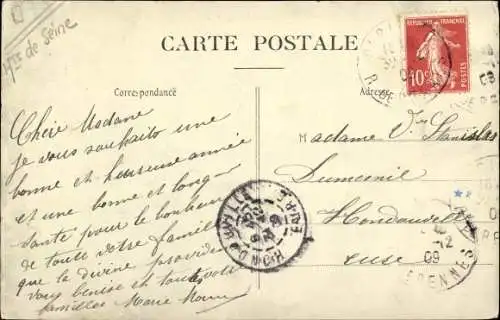 Hts de Seine
CARTE POSTALE
RÉPUBLIQUE FRANÇAISE
10c
POSTES
Correspondance
Adresse
Chère Madame
je vous souhaite une
bonne et heureuse année
et une bonne et longue
santé pour le bonheur
de toute votre famille
que la divine providence
vous bénisse et toute votre
famille Marie
Madame Vve Stanislas
Dumesnil
Hondouville
Eure
HONDOUVILLE
EURE
12
09